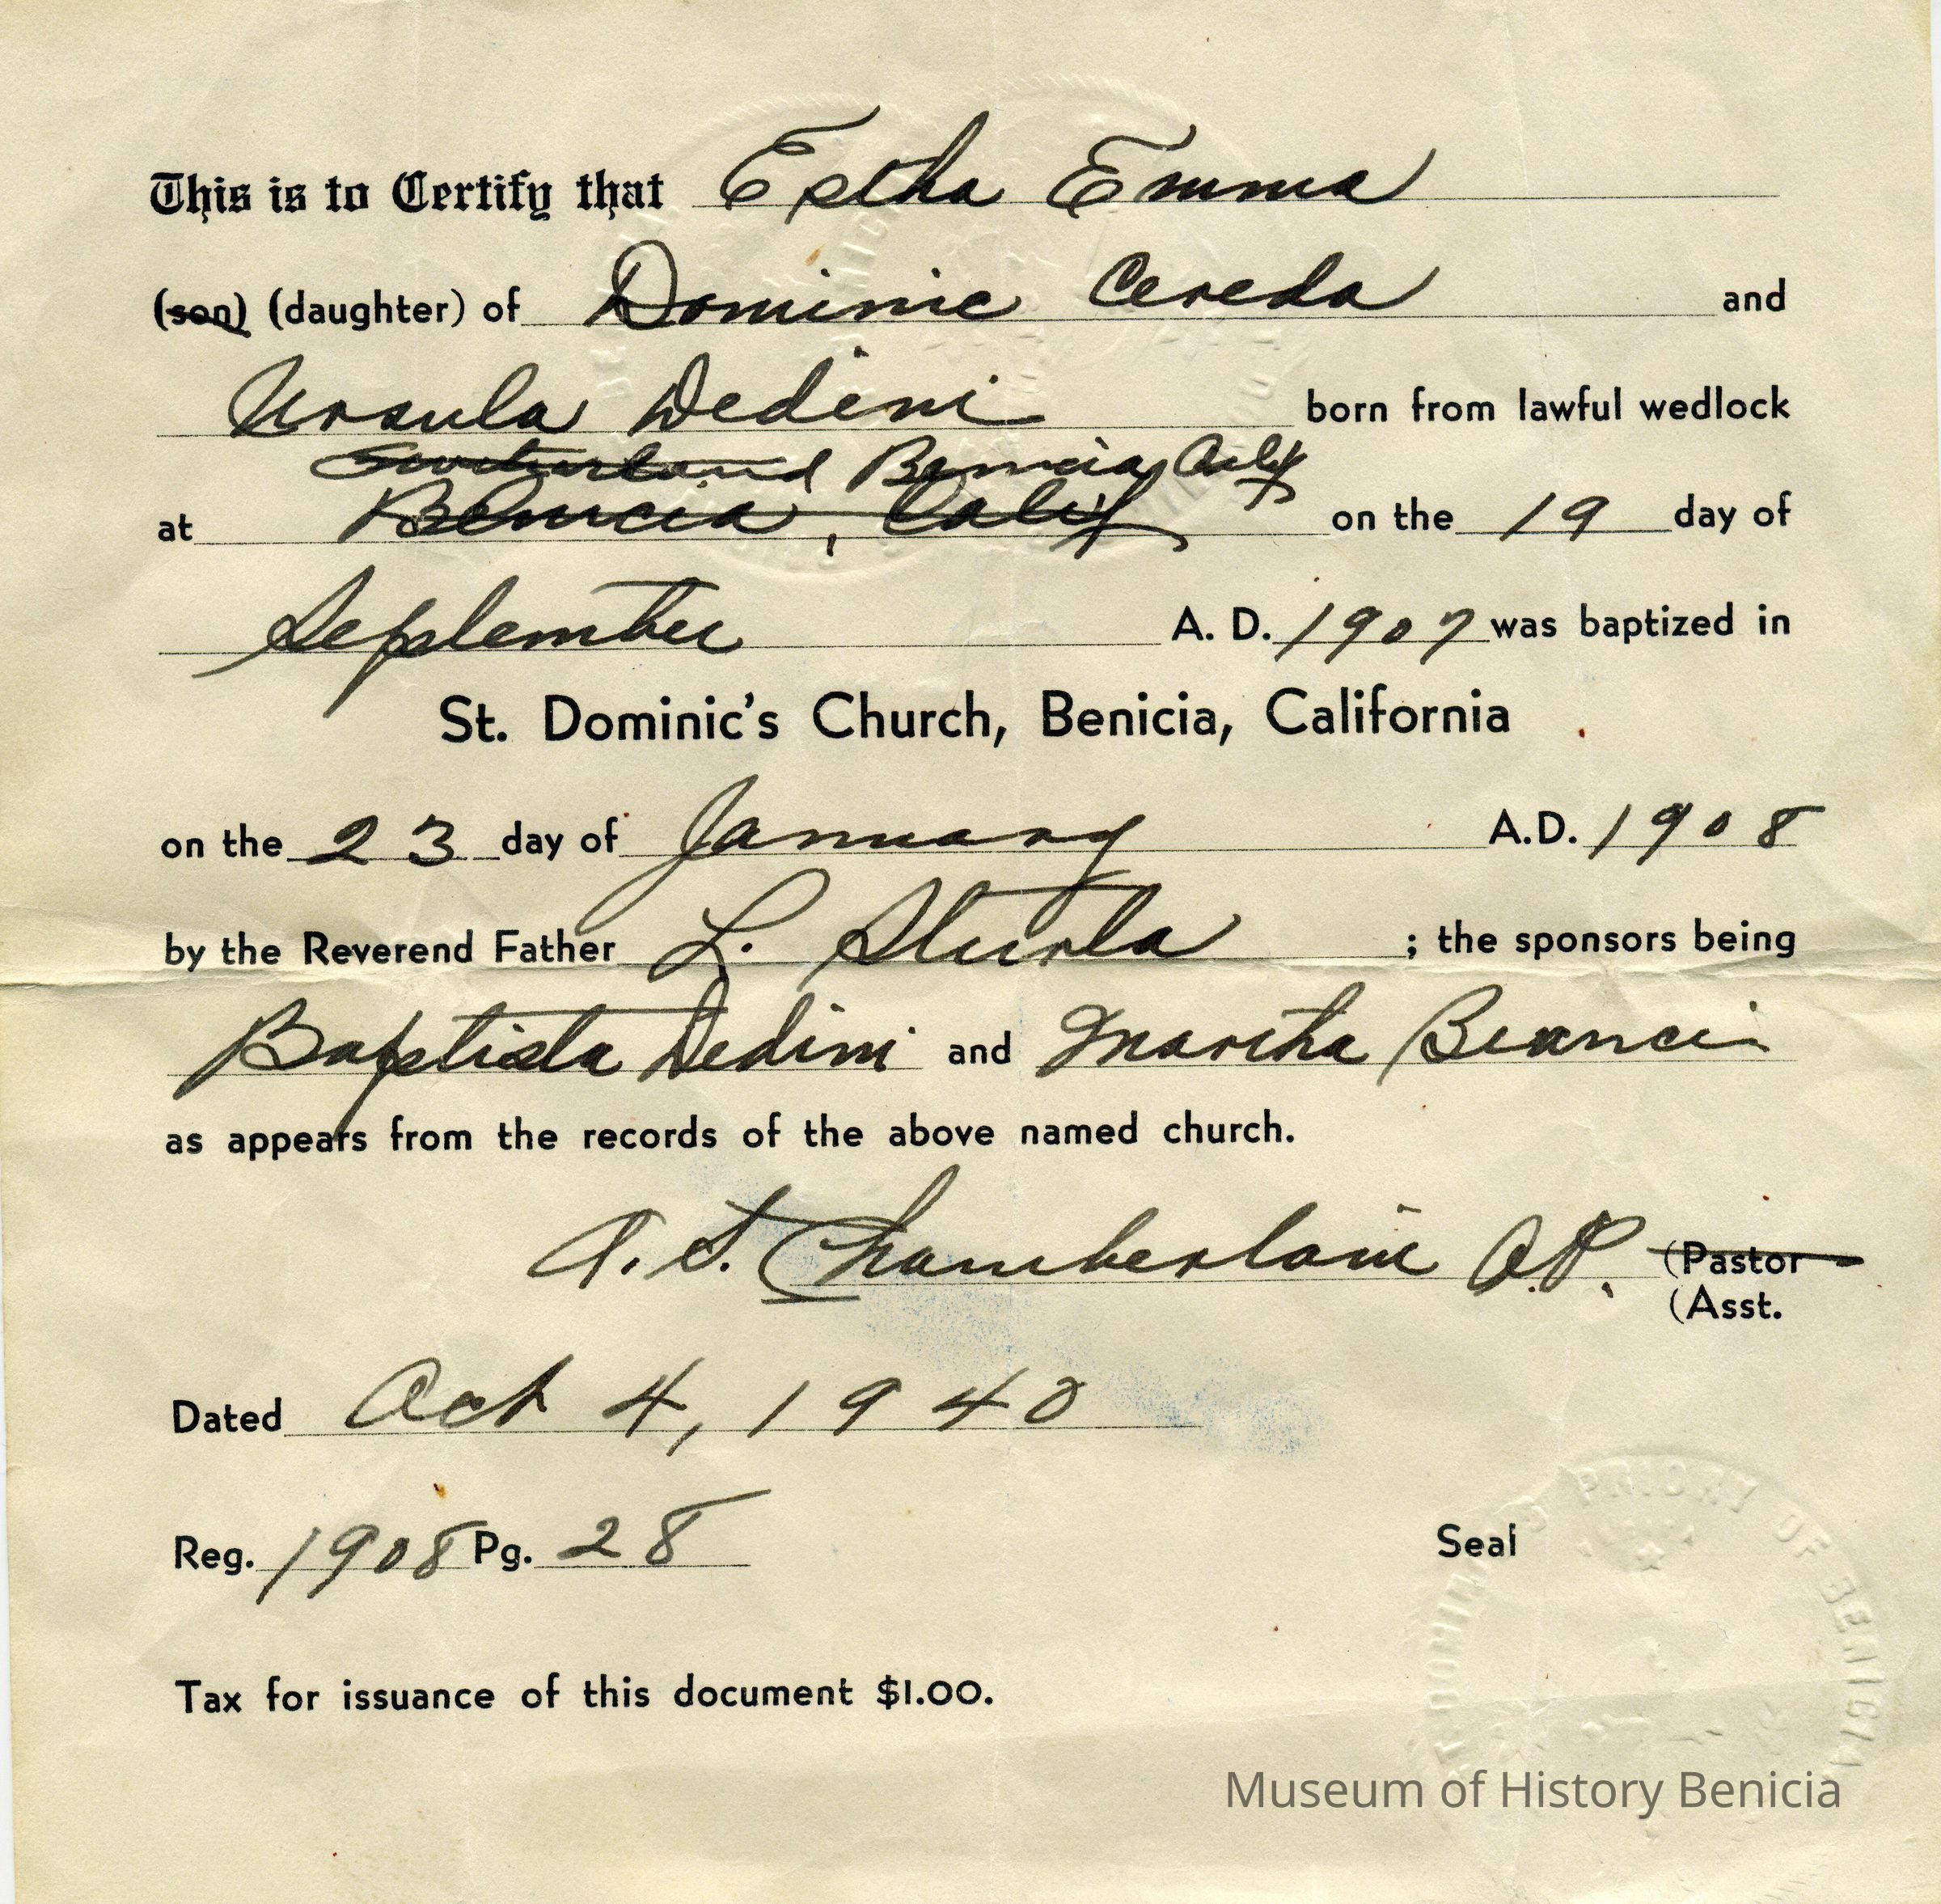 This is to Certify that Estha Emma
(son) (daughter) of Dominic Cereda and
Ursula Dedini born from lawful wedlock
Switzerland Benicia, Calif
at Benicia, Calif on the 19 day of
September A. D. 1907 was baptized in
St. Dominic's Church, Benicia, California
on the 23 day of January A.D. 1908
by the Reverend Father L. Sturla ; the sponsors being
Baptista Dedini and Martha Bianci
as appears from the records of the above named church.
A. S. Chamberlain O.P. (Pastor
(Asst.
Dated Oct 4, 1940
Reg. 1908 Pg. 28
Seal
PRIORY OF BENICIA
Tax for issuance of this document $1.00.
Museum of History Benicia